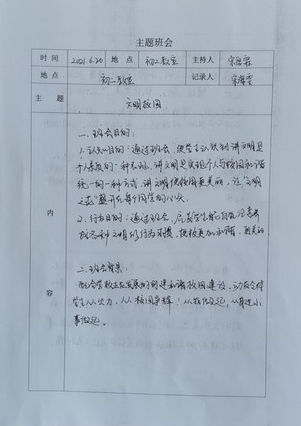 主题班会
时间 2021.6.20 地点 初二教室 主持人
地点 初二教室 记录人
主题 文明校园
内容
一、班会目的：
1、认知目的：通过班会，使学生认识到讲文明是
个人素质的一种表现。讲文明是实现个人与校园和谐
统一的一种方式，讲文明使校园更美丽，让“文明
之花”盛开在每个同学的心灵。
2、行为目的：通过班会，启发学生
文明的行为习惯，使校更加和谐、更美丽
二、班会背景：
配合学校正在发展的创建和谐校园建设，动员全体
学生人人出力，人人为校园争辉！从我做起，从身边小
事做起。